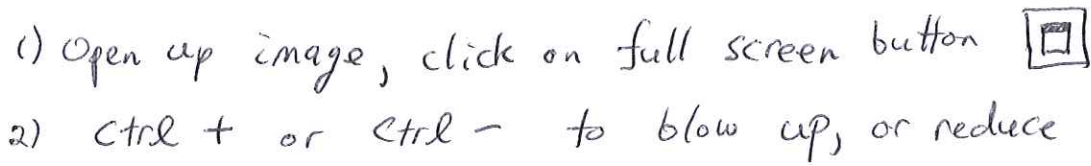 1) Open up image, click on full screen button
2) Ctrl + or Ctrl - to blow up, or reduce